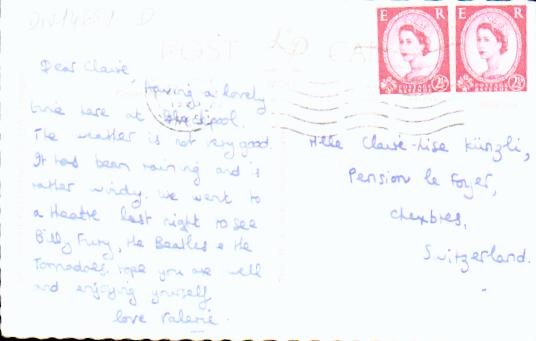 DIV-14651 D
POST CARD
E R
E R
2½
2½
Dear Claire,
Having a lovely
time here at Blackpool.
The weather is not very good.
It has been raining and is
rather windy. We went to
a theatre last night to see
Billy Fury, the Beatles & the
Tornadoes. hope you are well
and enjoying yourself
love Valerie.
Mlle Claire-Lise Künzli,
Pension le Foyer,
Chexbres,
Switzerland.